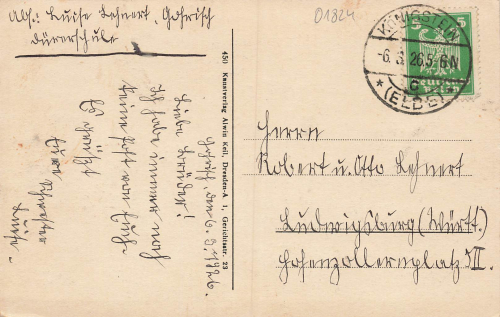 Abs: Luise Lehnert, Gohrisch
Dürerschule
01824
KÖNIGSTEIN
-6.3.26.5-6N
c
* (ELBE) *
5 5
Deutsches Reich
450 Kunstverlag Alwin Keil, Dresden-A 1, Gerichtsstr. 23
Gohrisch, den 6.3.1926.
Liebe Brüder!
Ich habe immer noch
keine Post von Euch.
Es grüßt
Eure Schwester
Luise.
Herrn
Robert u. Otto Lehnert
Ludwigsburg (Württ.)
Hohenzollernplatz II.